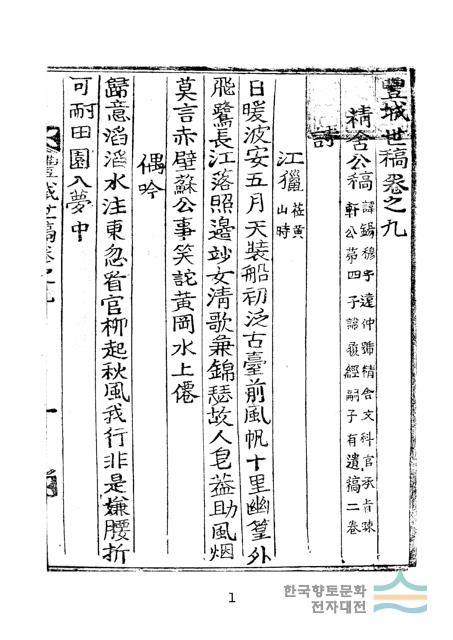 豐城世稿卷之九
精舍公稿
諱錫穆字達仲號精舍文科官承旨疎
軒公第四子諱履經嗣子有遺稿二卷
詩
江獵
莅黃
山時
日暖波安五月天裝船初泛古臺前風帆十里幽篁外
飛鷺長江落照邊竗女清歌兼錦瑟故人皂蓋助風烟
莫言赤壁蘇公事笑詑黃岡水上僊
偶吟
歸意滔滔水注東忽看官柳起秋風我行非是嫌腰折
可耐田園入夢中
豐城世稿卷之九 一
1
한국향토문화
전자대전